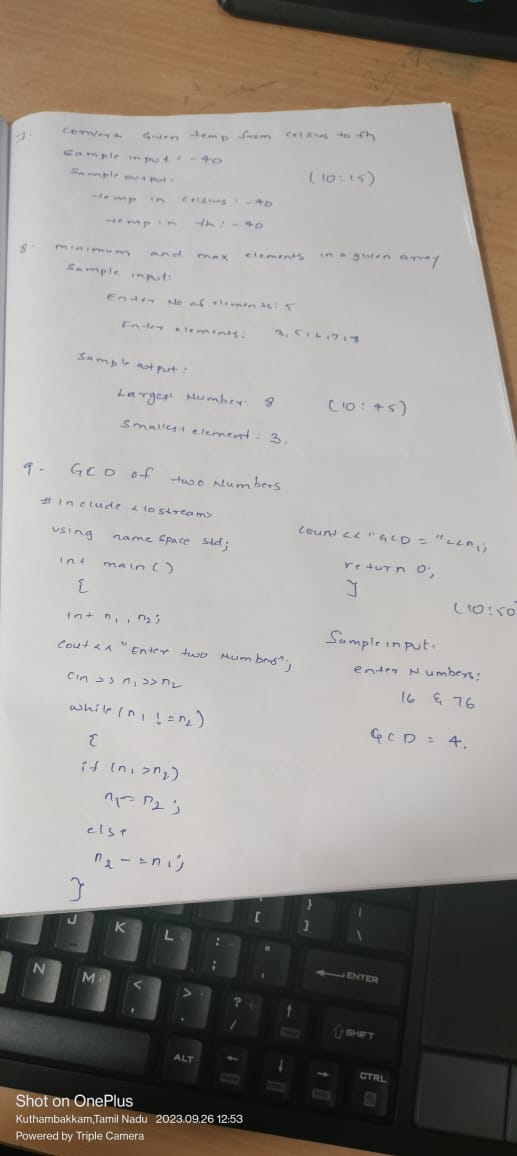 7. Convert Given temp from celsius to fh
Sample input: -40
Sample output:
(10:15)
temp in celsius: -40
temp in fh: -40
8. minimum and max elements in a given array
Sample input:
Enter No of elements: 5
Enter elements: 3,5,6,7,8
Sample output:
Largest Number: 8
(10:45)
Smallest element: 3.
9. GCD of two Numbers
# include <iostream>
using namespace std;
int main()
{
int n1, n2;
cout << "Enter two Numbers";
cin >> n1 >> n2
while (n1 != n2)
{
if (n1 > n2)
n1 -= n2;
else
n2 -= n1;
}
cout << "GCD = " << n1;
return 0;
}
(10:50
Sample input:
enter Numbers:
16 & 76
GCD = 4.
J
K
L
:
;
"
'
{
[
}
]
|
\
ENTER
N
M
<
,
>
.
?
/
SHIFT
ALT
CTRL
Shot on OnePlus
Kuthambakkam,Tamil Nadu 2023.09.26 12:53
Powered by Triple Camera